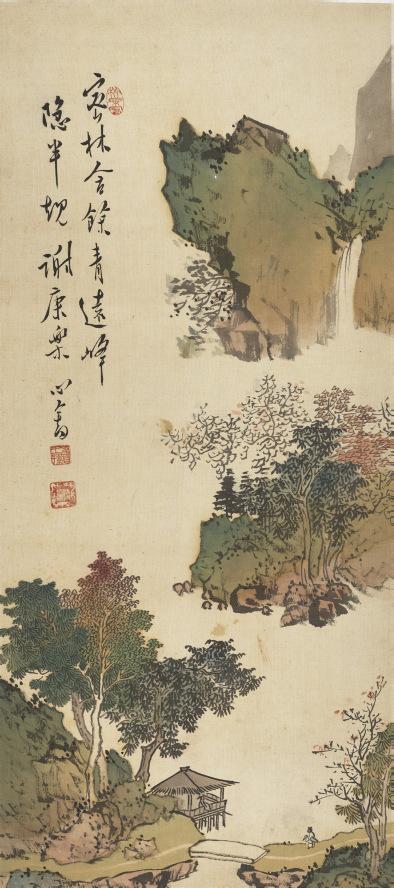 密林含餘青遠峰
隐半규謝康樂 心畬